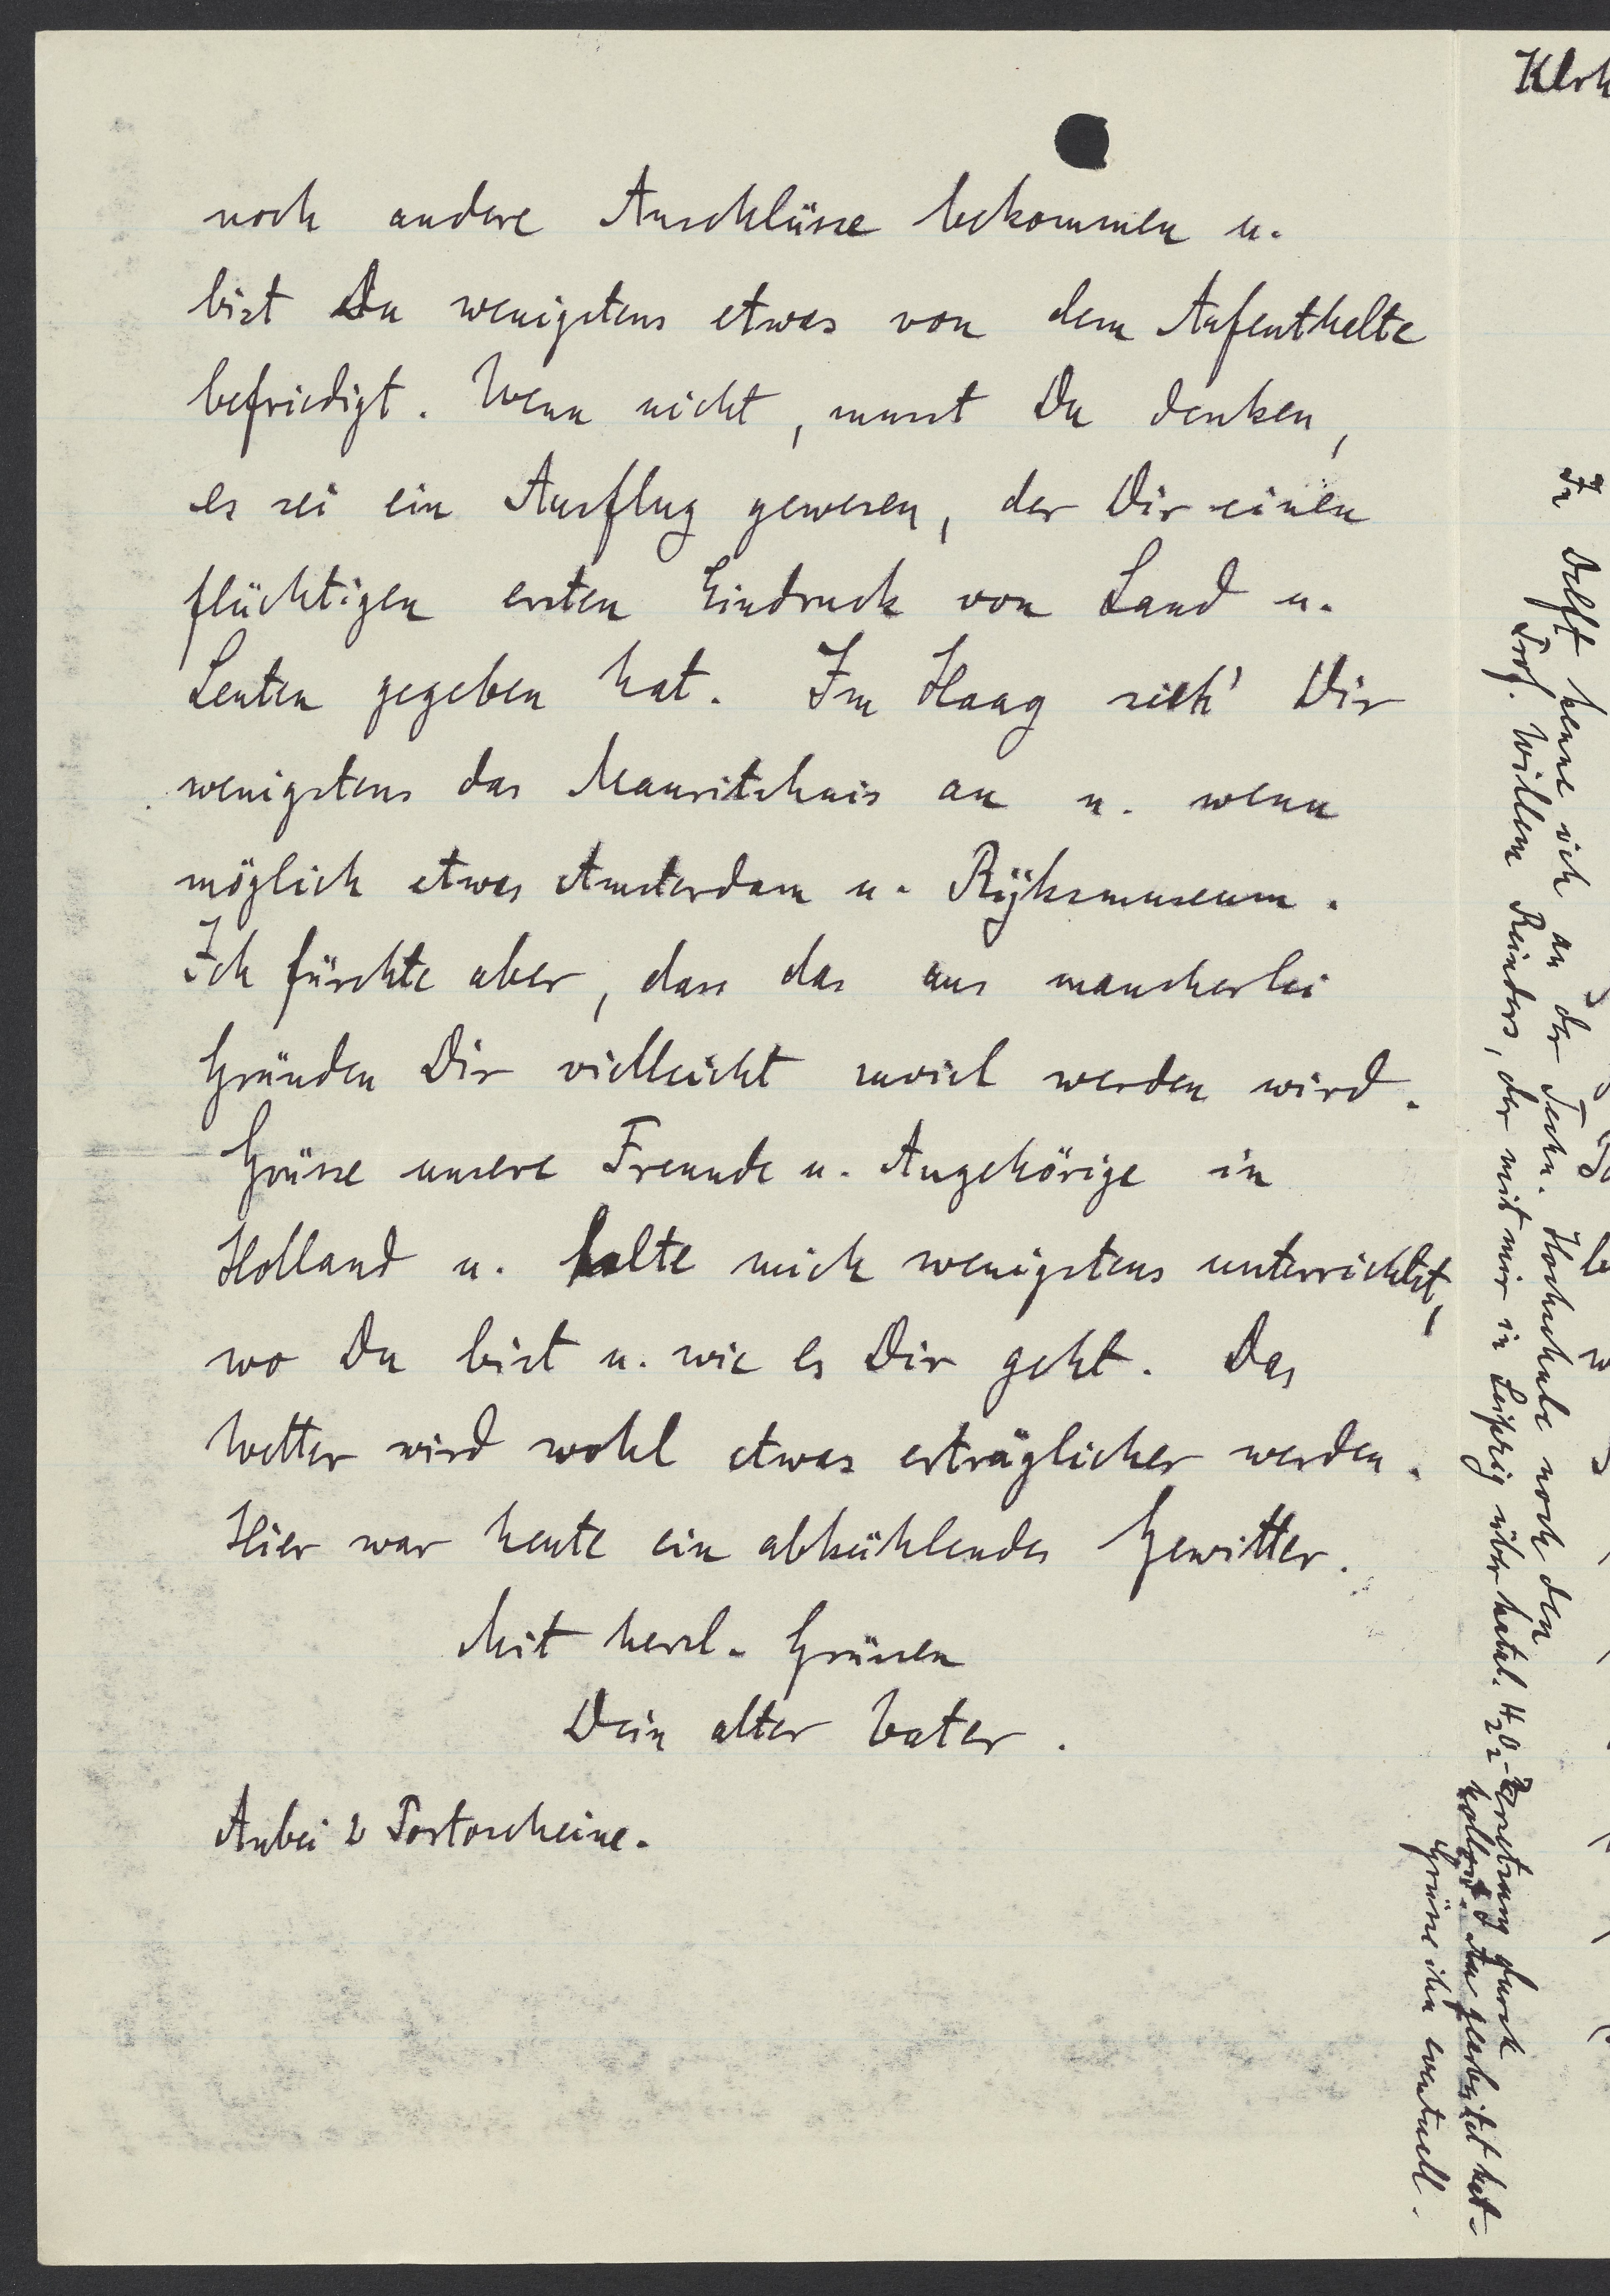 noch andere Anschlüsse bekommen u.
bist Du wenigstens etwas von dem Aufenthalte
befriedigt. Wenn nicht, musst Du denken,
es sei ein Ausflug gewesen, der Dir einen
flüchtigen ersten Eindruck von Land u.
Leuten gegeben hat. Im Haag sieh' Dir
wenigstens das Mauritshuis an u. wenn
möglich etwas Amsterdam u. Rijksmuseum.
Ich fürchte aber, dass das aus mancherlei
Gründen Dir vielleicht zuviel werden wird.
Grüsse unsere Freunde u. Angehörige in
Holland u. halte mich wenigstens unterrichtet,
wo Du bist u. wie es Dir geht. Das
Wetter wird wohl etwas erträglicher werden.
Hier war heute ein abkühlendes Gewitter.
Mit herzl. Grüssen
Dein alter Vater.
Anbei 2 Portoscheine.
In Delft kenne ich an der Techn. Hochschule noch den
Prof. Willem Reinders, der mit mir in Leipzig über katal. H2O2-Zersetzung durch
kolloid. Au gearbeitet hat.
Grüsse ihn eventuell.